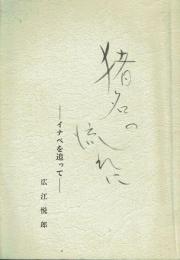 猪名の
流れに
―イナベを追って―
広江悦郎